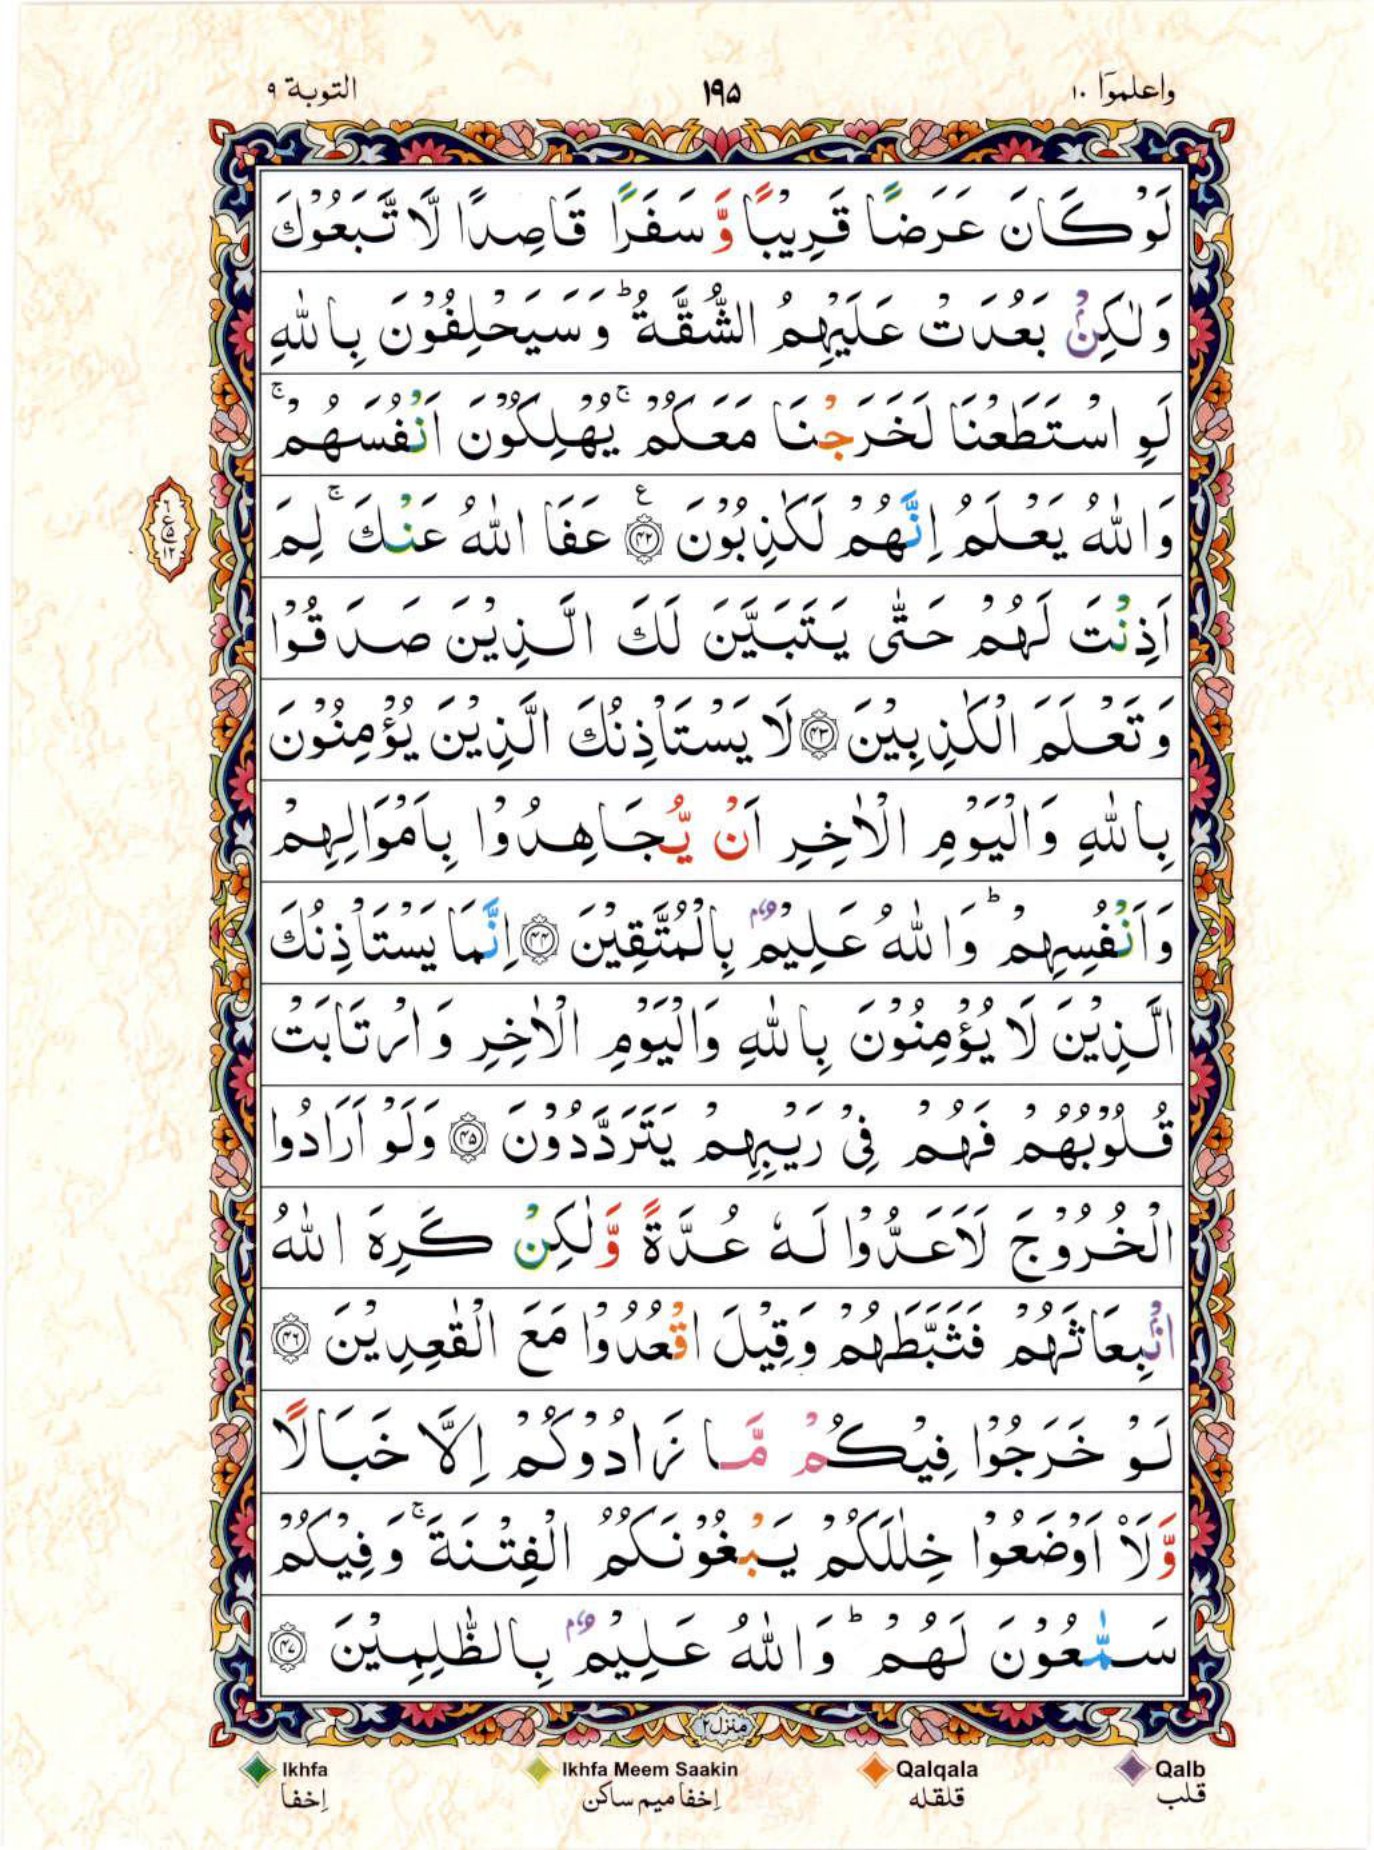 واعلموٓا ۱۰
۱۹۵
التوبة ۹
لَوْ كَانَ عَرَضًا قَرِيْبًا وَّسَفَرًا قَاصِدًا لَّا تَّبَعُوْكَ
وَلٰكِنْۢ بَعُدَتْ عَلَيْهِمُ الشُّقَّةُ ؕ وَسَيَحْلِفُوْنَ بِاللّٰهِ
لَوِ اسْتَطَعْنَا لَخَرَجْنَا مَعَكُمْ ۚ يُهْلِكُوْنَ اَنْفُسَهُمْ ۚ
وَاللّٰهُ يَعْلَمُ اِنَّهُمْ لَكٰذِبُوْنَ ﴿۴۲﴾ ع عَفَا اللّٰهُ عَنْكَ ۚ لِمَ
ع ٦ ۵ ۱۲
اَذِنْتَ لَهُمْ حَتّٰى يَتَبَيَّنَ لَكَ الَّذِيْنَ صَدَقُوْا
وَتَعْلَمَ الْكٰذِبِيْنَ ﴿۴۳﴾ لَا يَسْتَاْذِنُكَ الَّذِيْنَ يُؤْمِنُوْنَ
بِاللّٰهِ وَالْيَوْمِ الْاٰخِرِ اَنْ يُّجَاهِدُوْا بِاَمْوَالِهِمْ
وَاَنْفُسِهِمْ ؕ وَاللّٰهُ عَلِيْمٌۢ بِالْمُتَّقِيْنَ ﴿۴۴﴾ اِنَّمَا يَسْتَاْذِنُكَ
الَّذِيْنَ لَا يُؤْمِنُوْنَ بِاللّٰهِ وَالْيَوْمِ الْاٰخِرِ وَارْتَابَتْ
قُلُوْبُهُمْ فَهُمْ فِيْ رَيْبِهِمْ يَتَرَدَّدُوْنَ ﴿۴۵﴾ وَلَوْ اَرَادُوا
الْخُرُوْجَ لَاَعَدُّوْا لَهٗ عُدَّةً وَّلٰكِنْ كَرِهَ اللّٰهُ
انْۢبِعَاثَهُمْ فَثَبَّطَهُمْ وَقِيْلَ اقْعُدُوْا مَعَ الْقٰعِدِيْنَ ﴿۴۶﴾
لَوْ خَرَجُوْا فِيْكُمْ مَّا زَادُوْكُمْ اِلَّا خَبَالًا
وَّلَا۟اَوْضَعُوْا خِلٰلَكُمْ يَبْغُوْنَكُمُ الْفِتْنَةَ ۚ وَفِيْكُمْ
سَمّٰعُوْنَ لَهُمْ ؕ وَاللّٰهُ عَلِيْمٌۢ بِالظّٰلِمِيْنَ ﴿۴۷﴾
منزل۲
Ikhfa
اِخفا
Ikhfa Meem Saakin
اِخفا میم ساکن
Qalqala
قلقله
Qalb
قلب